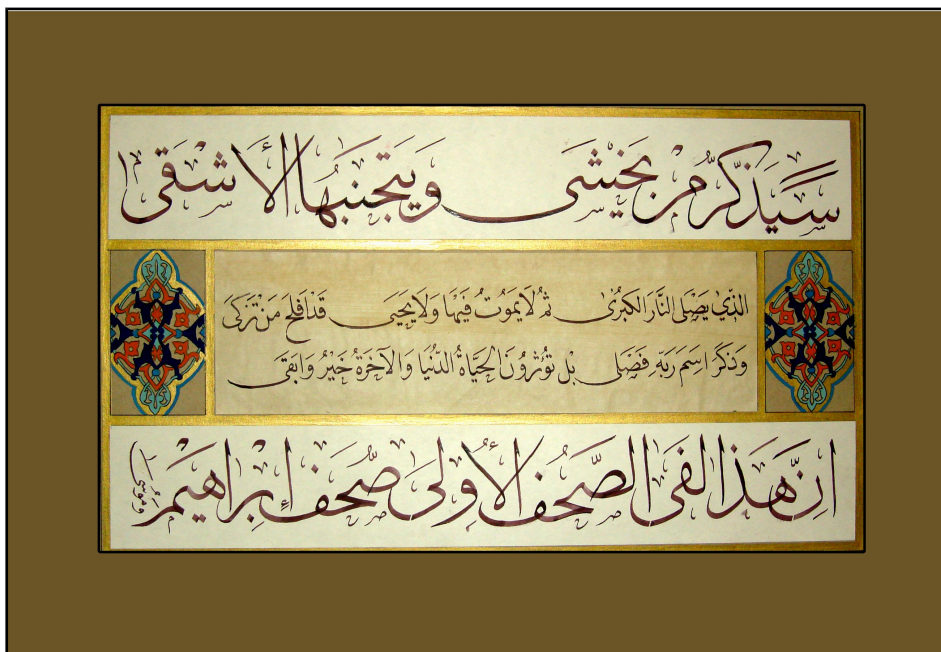 سَيَذَّكَّرُ مَنْ يَخْشَى وَيَتَجَنَّبُهَا الأَشْقَى
الذي يَصْلَى النَّارَ الكُبْرَى ثُمَّ لَا يَمُوتُ فِيهَا وَلَا يَحْيَى قَدْ افْلَحَ مَنْ تَزَكَّى
وَذَكَرَ اسْمَ رَبِّهِ فَصَلَّى بَلْ تُؤْثِرُونَ الحَيَاةَ الدُّنْيَا وَالآخِرَةُ خَيْرٌ وَابْقَى
انَّ هَذَا لَفِي الصُّحُفِ الأُولَى صُحُفِ إِبْرَاهِيمَ وَمُوسَى